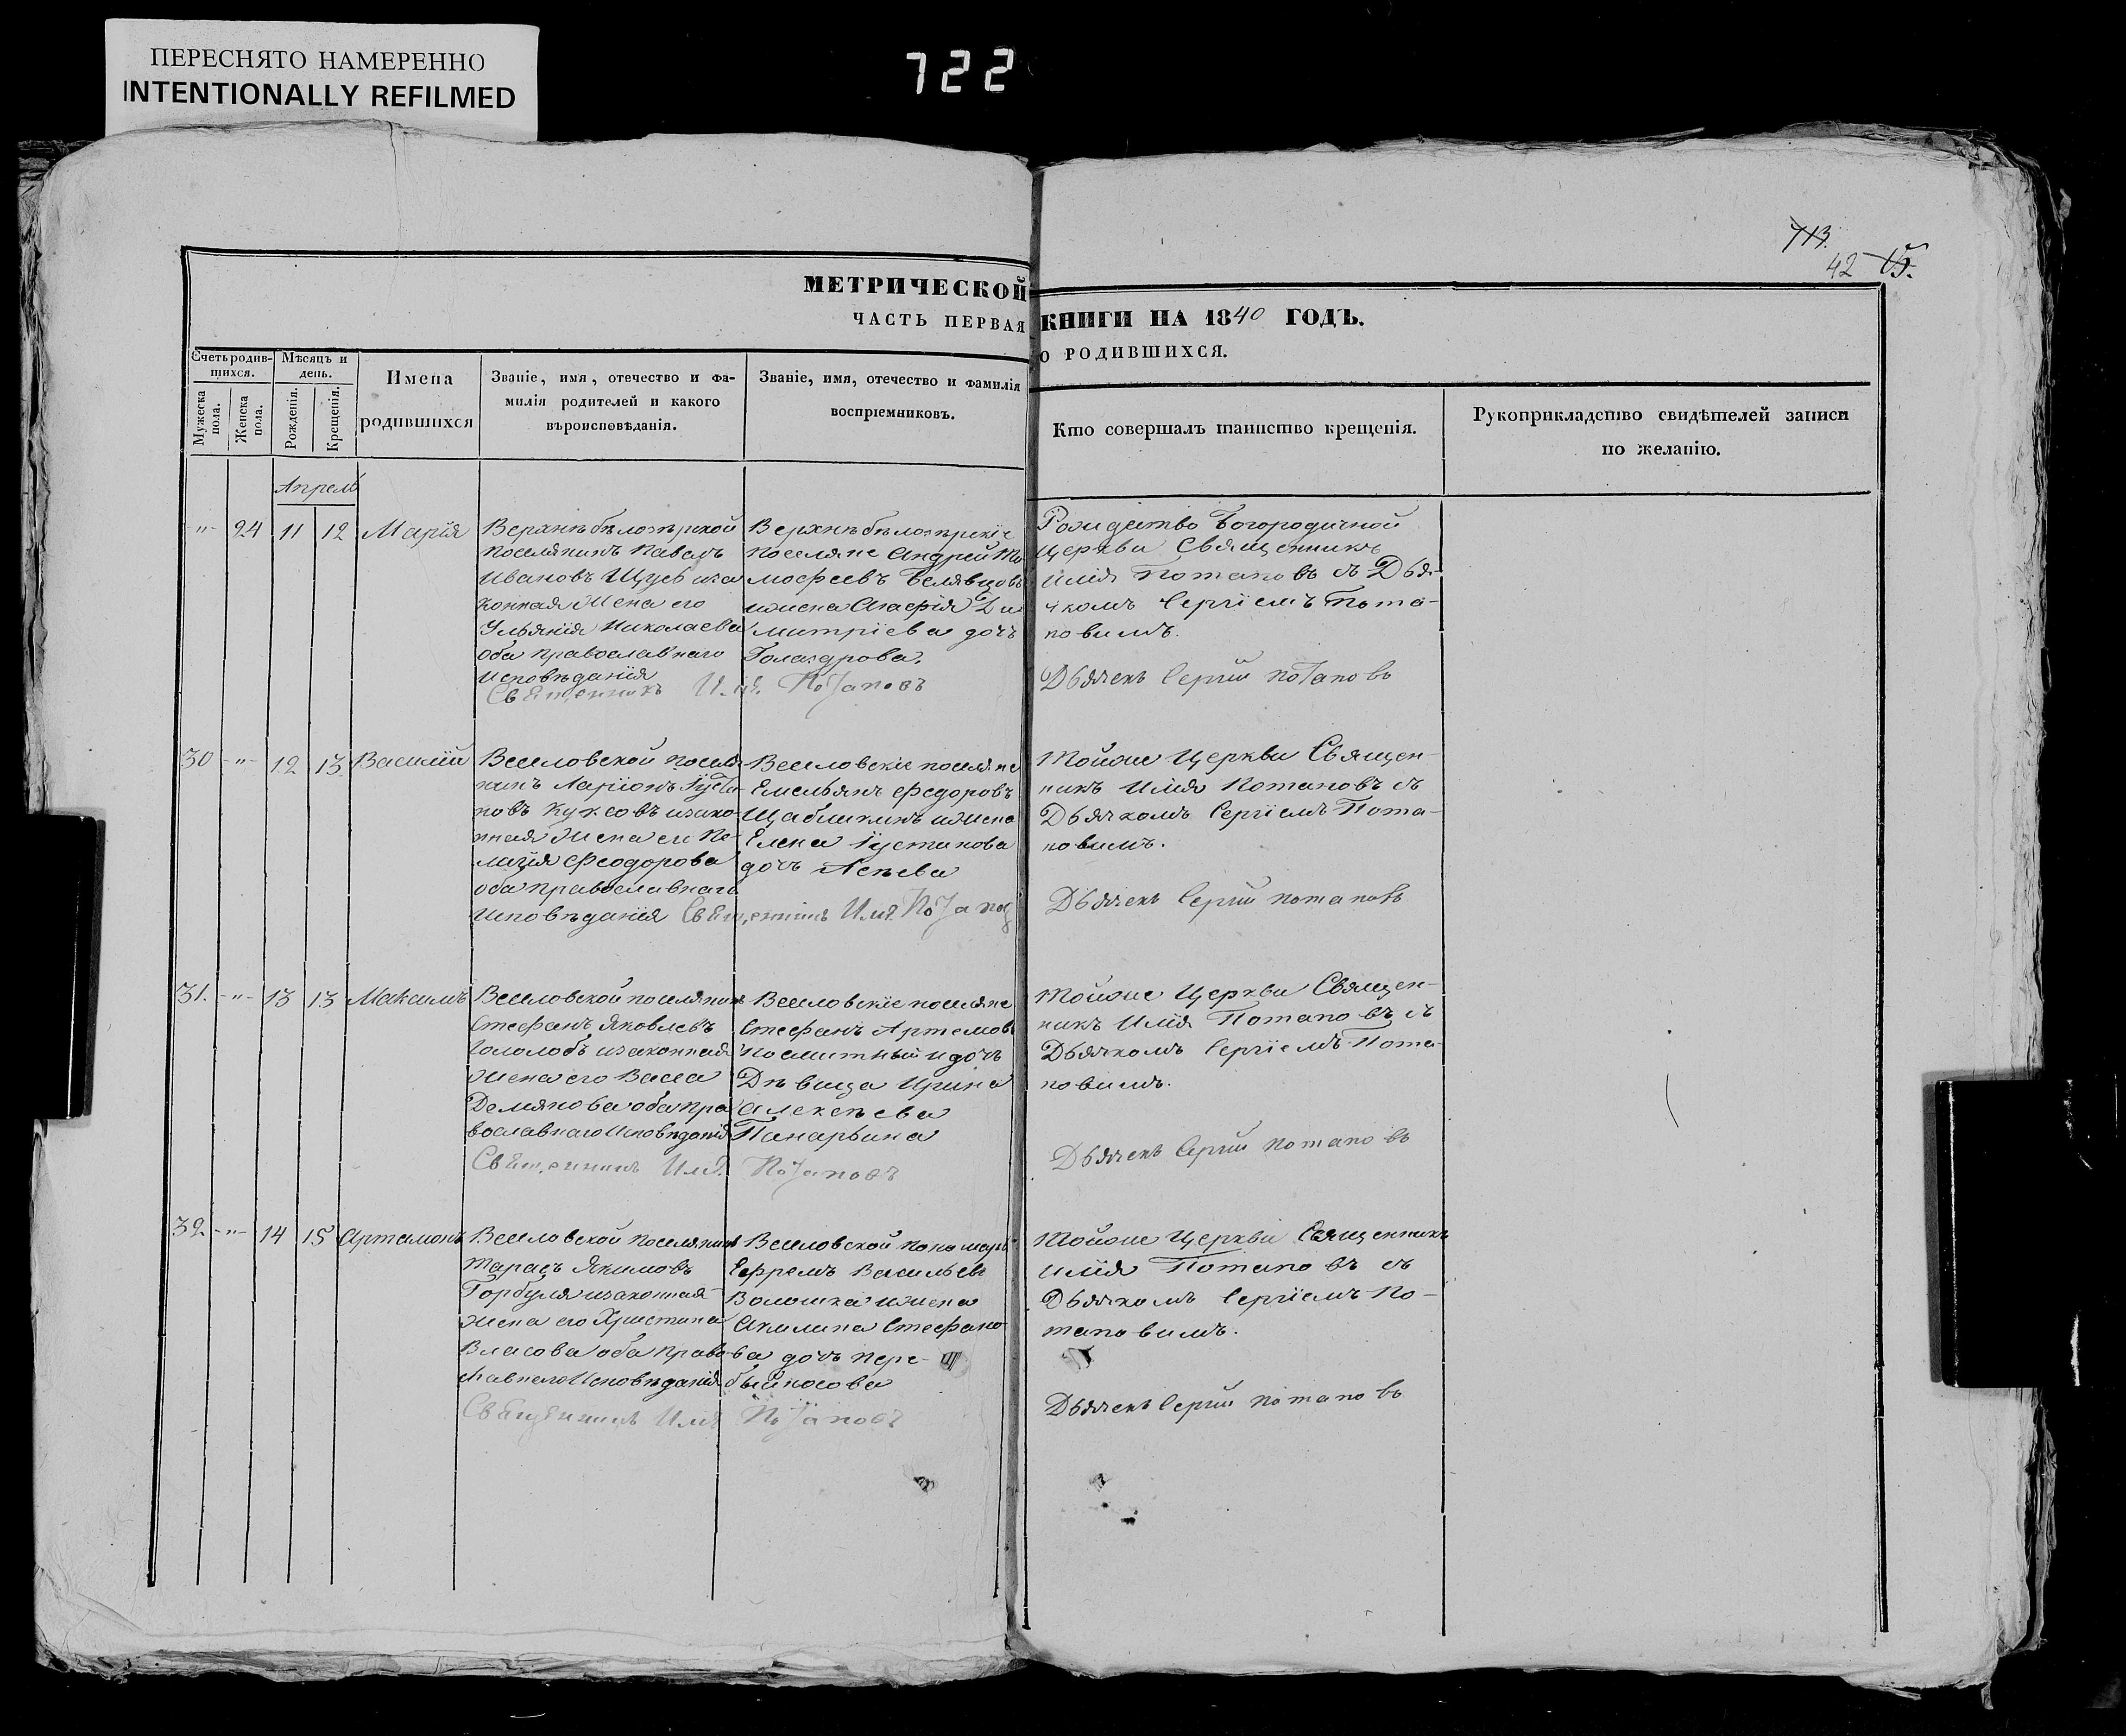 ПЕРЕСНЯТО НАМЕРЕННО
INTENTIONALLY REFILMED
722
713.
42 15.
МЕТРИЧЕСКОЙ КНИГИ НА 1840 ГОДЪ.
ЧАСТЬ ПЕРВАЯ О РОДИВШИХСЯ.
Счетъ родив-
шихся.
Мужеска
пола.
Женска
пола.
Мѣсяцъ и
день.
Рожденія.
Крещенія.
Имена
родившихся
Званіе, имя, отечество и фа-
милія родителей и какого
вѣроисповѣданія.
Званіе, имя, отечество и фамилія
воспріемниковъ.
Кто совершалъ таинство крещенія.
Рукоприкладство свидѣтелей записи
по желанію.
Апрель
" 24 11 12 Марія
Верхнѣбѣлозѣрской
поселянинъ Павелъ
Ивановъ Щусь иза
конная Жена его
Ульянія Николаева
оба православнаго
исповѣданія
Верхнѣбѣлозѣрскіе
поселяне Андрей Ти
мофеевъ Белявцовъ
ижена Агафія Ди
митріева дочъ
Голаздрова.
Священникъ Илія Потаповъ
Рождество Богородичной
Церкви Священникъ
Илія Потаповъ съ Дья-
чкомъ Сергіемъ Пота-
повимъ.
Дьячекъ Сергій Потаповъ
30 " 12 13 Василій
Веселовской поселя-
нинъ Ларіонъ Іусти-
новъ Куксовъ изако-
нная Жена его Пе-
лагія Феодорова
оба православнаго
исповѣданія
Веселовскіе поселяне
Емельянъ Федоровъ
Щабликинъ ижена
Елена Іустинова
дочъ Лепева
Священникъ Илія Потаповъ
Тойже Церкви Священ-
никъ Илія Потаповъ съ
Дьячкомъ Сергіемъ Пота-
повимъ.
Дьячекъ Сергій Потаповъ
31. " 13 13 Максимъ
Веселовской поселянинъ
Стефанъ Яковлевъ
Гололобъ изаконная
Жена его Васса
Демянова оба пра
вославнаго исповѣданія
Веселовскіе поселяне
Стефанъ Артемовъ
идочъ
Дѣвица Ирина
Алексѣева
Панарьина
Священникъ Илія Потаповъ
Тойже Церкви Священ-
никъ Илія Потаповъ съ
Дьячкомъ Сергіемъ Пота-
повимъ.
Дьячекъ Сергій Потаповъ
32. " 14 15 Артамонъ
Веселовской поселянинъ
Тарасъ Якимовъ
Горбуля изаконная
Жена его Христина
Власова оба право-
славнаго исповѣданія
Веселовской пономарь
Ефремъ Васильевъ
Волошка ижена
Акилина Стефано-
ва дочъ Пере-
бийносова
Священникъ Илія Потаповъ
Тойже Церкви Священникъ
Илія Потаповъ съ
Дьячкомъ Сергіемъ По-
таповимъ.
Дьячекъ Сергій Потаповъ